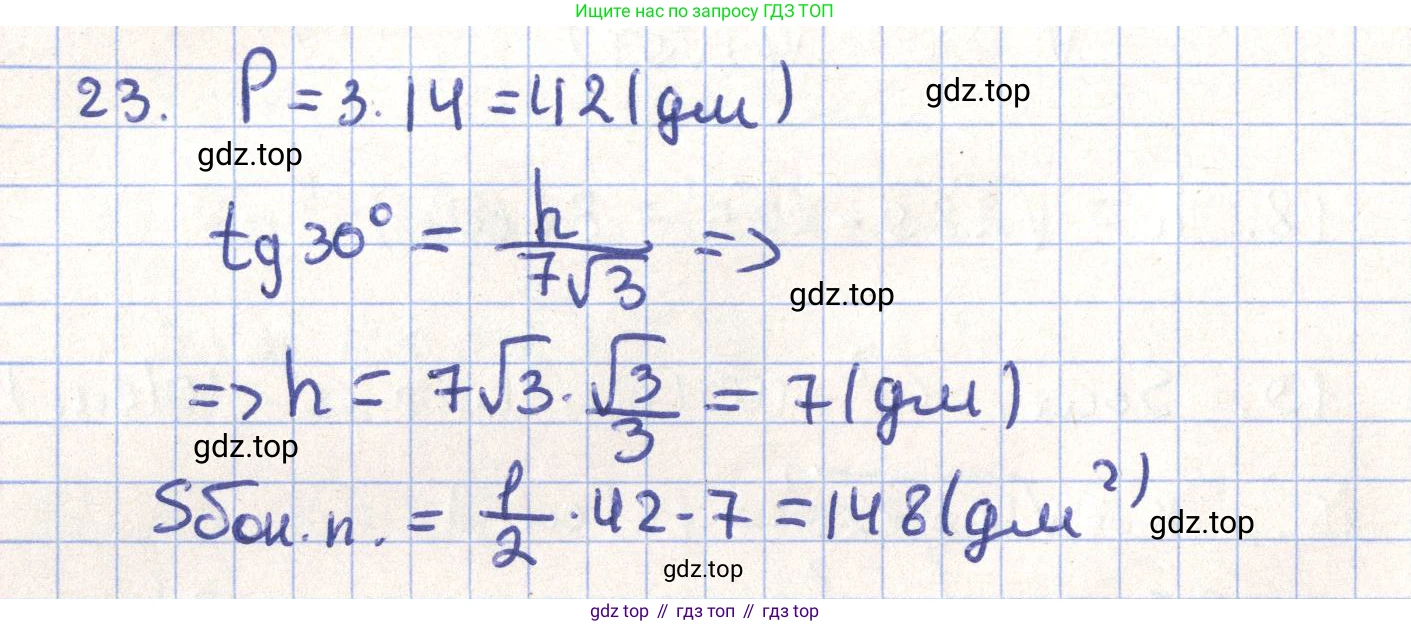 Ищите нас по запросу ГДЗ ТОП
23. P = 3 · 14 = 42 (дм)
gdz.top
gdz.top
tg 30° = h / 7√3 =>
gdz.top
=> h = 7√3 · √3 / 3 = 7 (дм)
gdz.top
Sбок.п. = 1/2 · 42 · 7 = 148 (дм²)
gdz.top
gdz.top
gdz top // гдз топ // гдз top